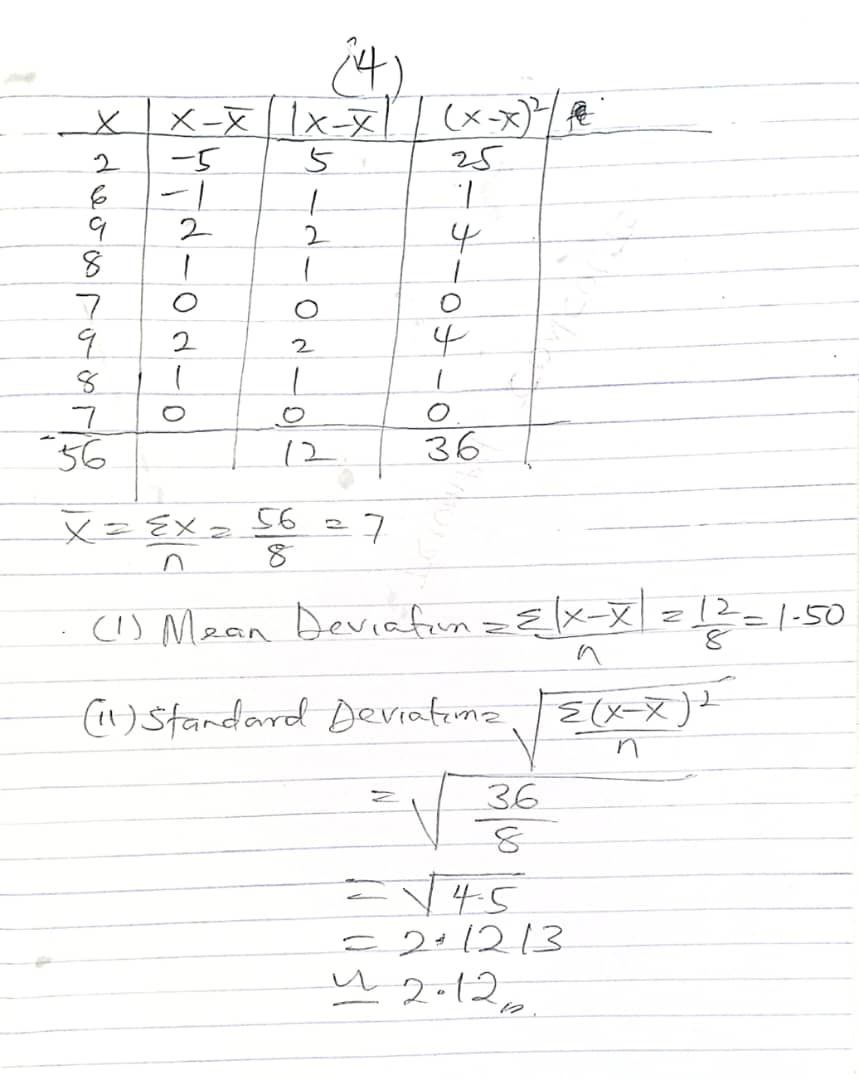 (4)
x | x-x̄ | |x-x̄| | (x-x̄)²
2 | -5 | 5 | 25
6 | -1 | 1 | 1
9 | 2 | 2 | 4
8 | 1 | 1 | 1
7 | 0 | 0 | 0
9 | 2 | 2 | 4
8 | 1 | 1 | 1
7 | 0 | 0 | 0
56 | | 12 | 36
x̄ = Σx/n = 56/8 = 7
(i) Mean Deviation = Σ|x-x̄|/n = 12/8 = 1.50
(ii) Standard Deviation = √(Σ(x-x̄)²/n)
= √(36/8)
= √4.5
= 2.1213
≃ 2.12